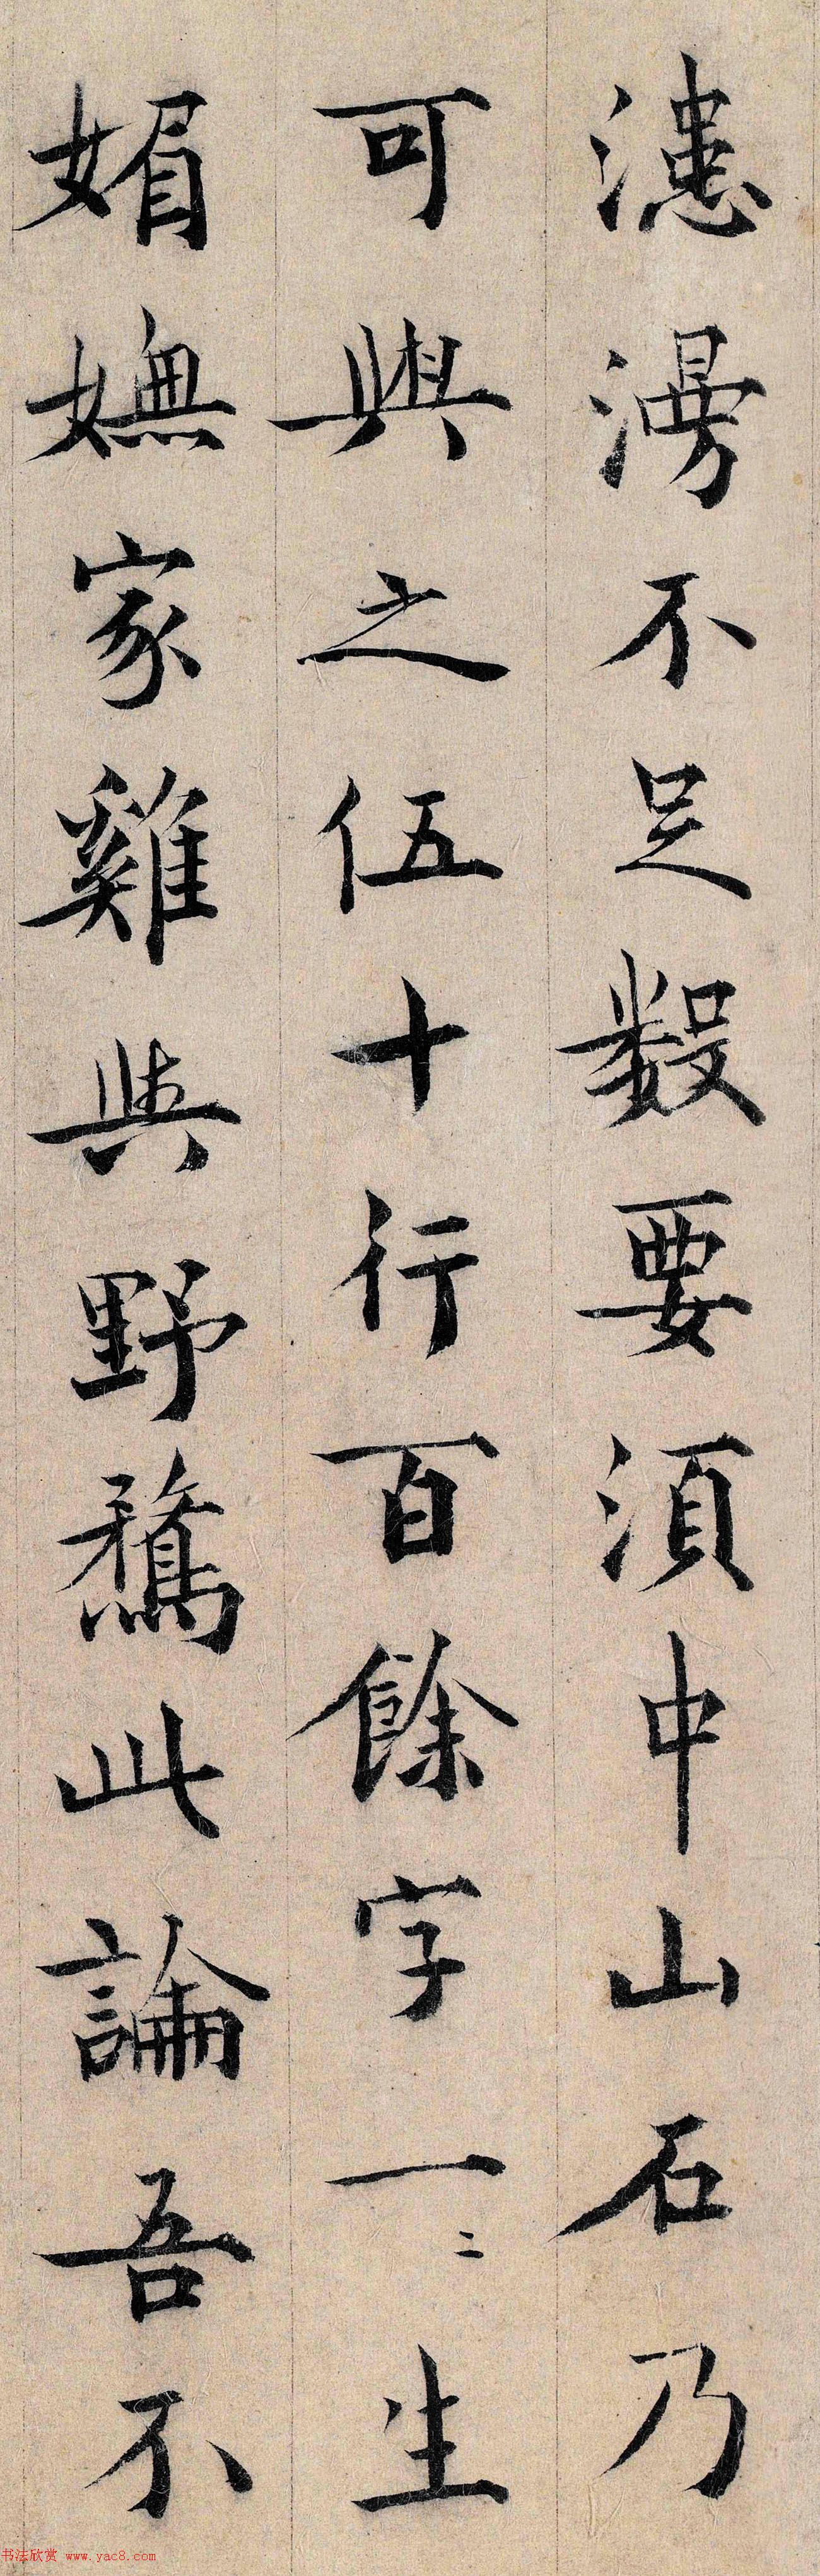 漶漫不足數要須中山石乃
可與之伍十行百餘字一二生
媚嫵家雞與野鶩此論吾不
书法欣赏 www.yac8.com